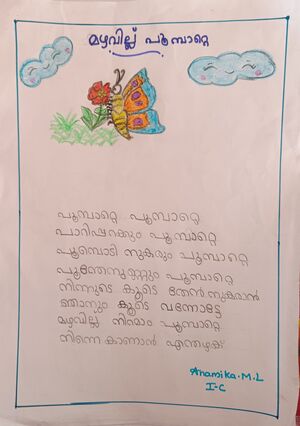 മഴവില്ല് പൂമ്പാറ്റെ
പൂമ്പാറ്റെ പൂമ്പാറ്റെ
പാറിപ്പറക്കും പൂമ്പാറ്റെ
പൂമ്പൊടി നുകരും പൂമ്പാറ്റെ
പൂന്തേനുണ്ണും പൂമ്പാറ്റെ
നിന്നുടെ കൂടെ തേൻ നുകരാൻ
ഞാനും കൂടെ വന്നോട്ടേ
മഴവില്ല് നിറമാം പൂമ്പാറ്റെ
നിന്നെ കാണാൻ എന്തഴക്
Anamika.M.L
I-C